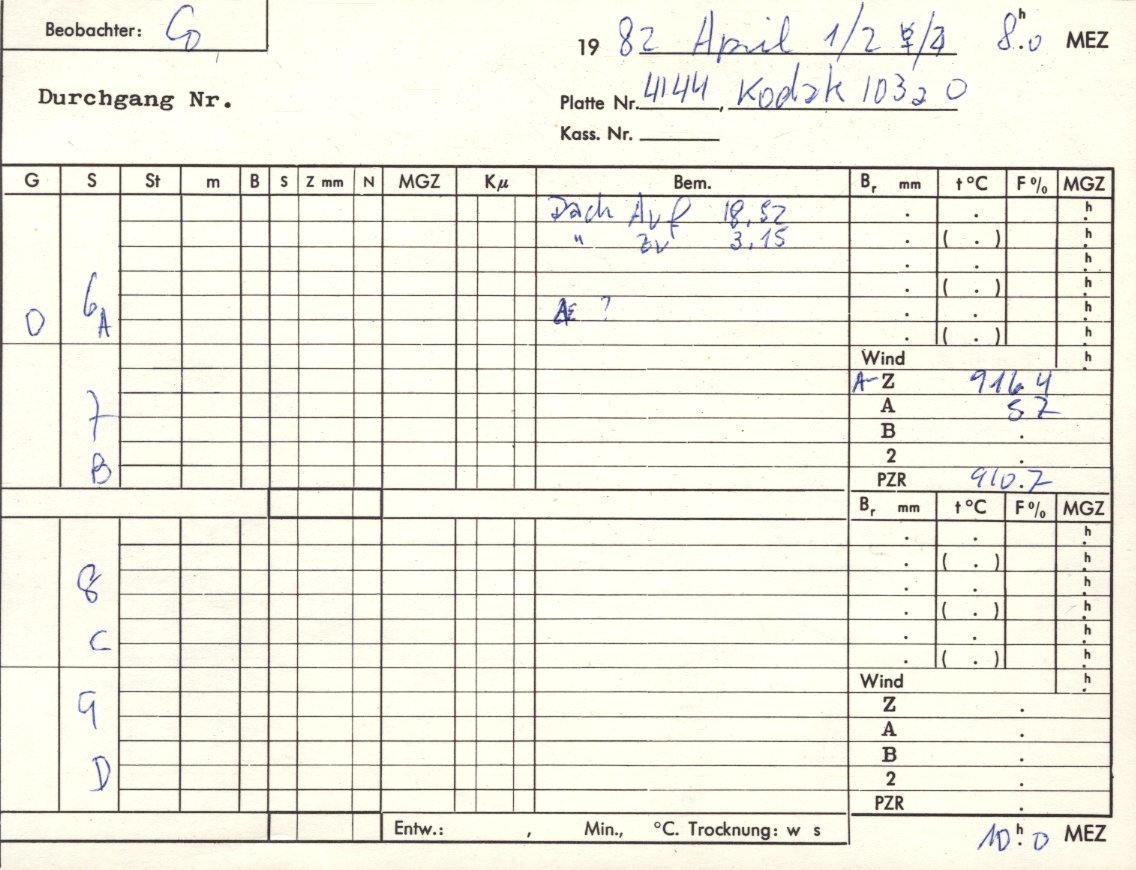 Beobachter:
19 82 April 1/2 8.h0 MEZ
Durchgang Nr.
Platte Nr. 4144, Kodak 103a O
Kass. Nr.
G S St m B S Z mm N MGZ Kμ Bem. Br mm t°C F% MGZ
Dach Auf 18,52 . . h.
" zu 3,15 . ( . ) h.
. . h.
6 . ( . ) h.
? . . h.
0 A . ( . ) h.
Wind h.
A-Z 916.4
7 A 5.7
B .
B 2 .
PZR 910.7
Br mm t°C F% MGZ
. . h.
. ( . ) h.
8 . . h.
. ( . ) h.
C . . h.
. ( . ) h.
Wind h.
9 Z .
A .
B .
D 2 .
PZR .
Entw.: , Min., °C. Trocknung: w s
10.h0 MEZ